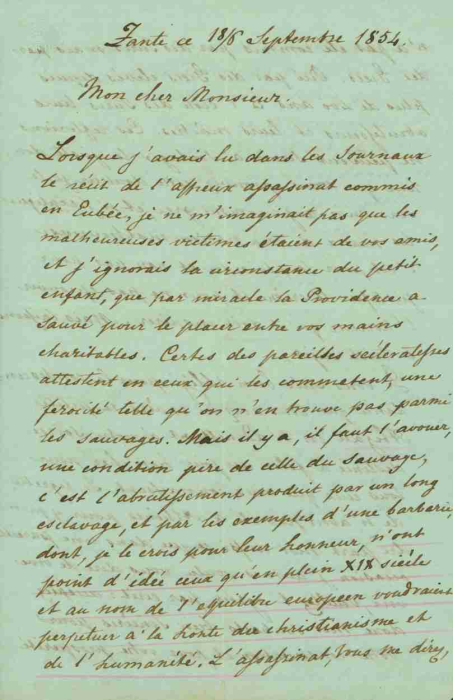 Zante ce 18/6 Septembre 1854.
Mon cher Monsieur.
Lorsque j'avais lu dans les Journaux
le récit de l'affreux assassinat commis
en Eubée, je ne m'imaginait pas que les
malheureuses victimes étaient de vos amis,
et j'ignorais la circonstance du petit
enfant, que par miracle la Providence a
sauvé pour le placer entre vos mains
charitables. Certes des pareilles scéleratesses
attestent en ceux qui les commetent, une
ferocité telle qu'on n'en trouve pas parmi
les sauvages. Mais il y a, il faut l'avouer,
une condition pire de celle du sauvage,
c'est l'abrutissement produit par un long
esclavage, et par les exemples d'une barbarie,
dont, je le crois pour leur honneur, n'ont
point d'idée ceux qu'en plein XIX siécle
et au nom de l'equilibre européen voudraient
perpetuer à la honte du christianisme et
de l'humanité. L'assassinat, vous me direz,